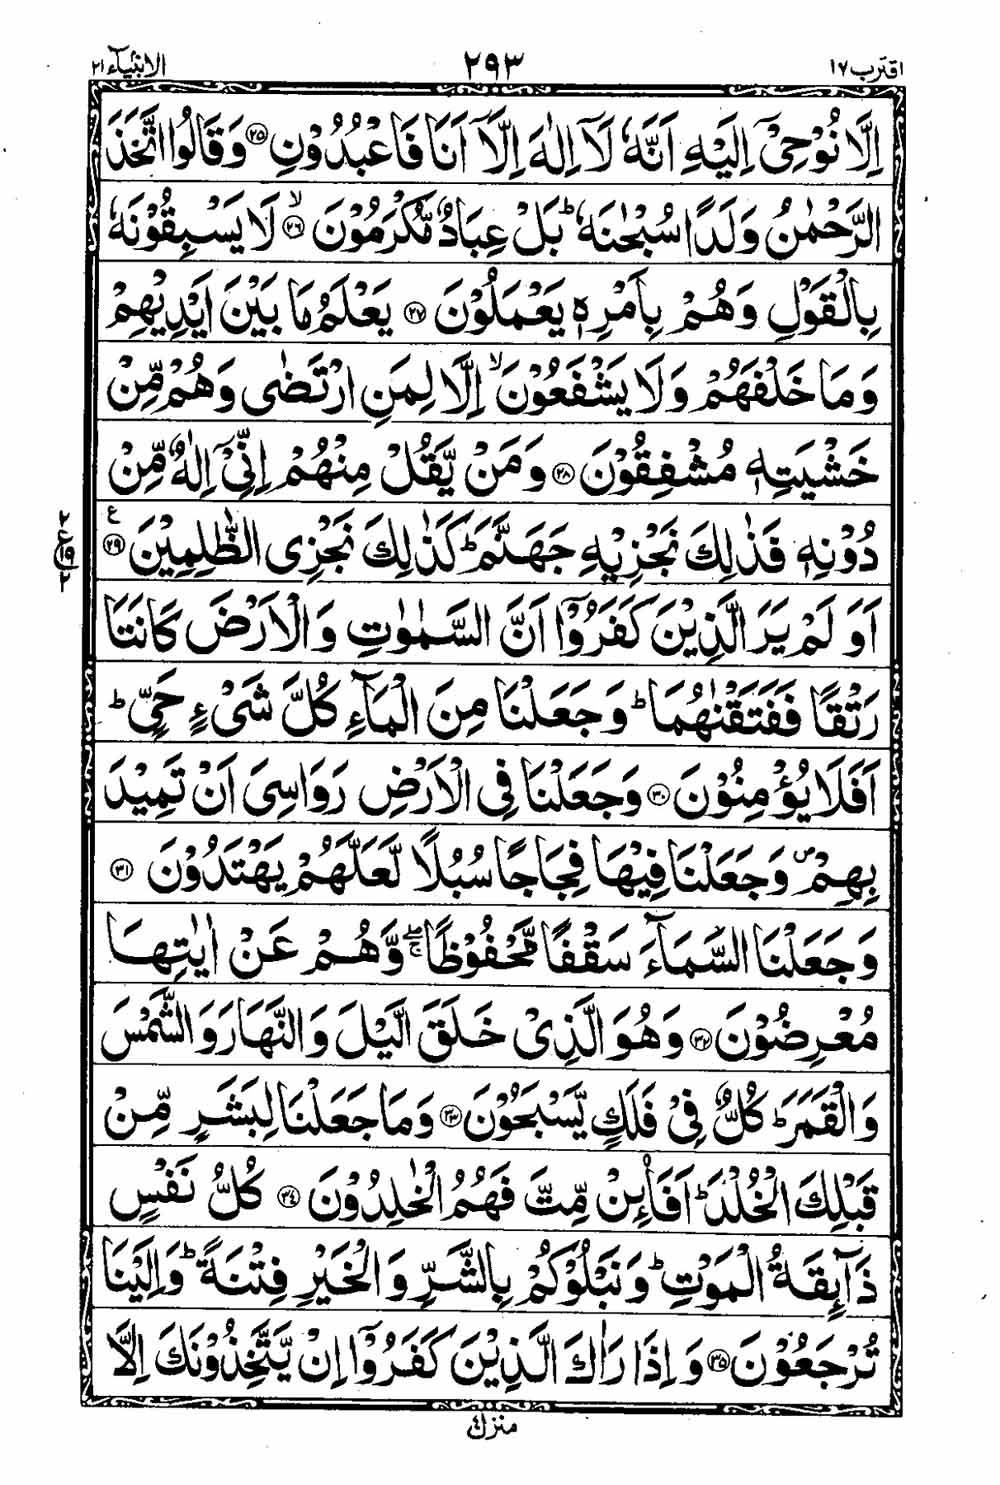 اقترب ١٧ ٢٩٣ الانبیآء ٢١
اِلَّا نُوْحِیْۤ اِلَیْهِ اَنَّهٗ لَاۤ اِلٰهَ اِلَّاۤ اَنَا فَاعْبُدُوْنِ ﴿۲۵﴾ وَقَالُوا اتَّخَذَ
الرَّحْمٰنُ وَلَدًا سُبْحٰنَهٗ ؕ بَلْ عِبَادٌ مُّكْرَمُوْنَ ﴿۲۶﴾ۙ لَا یَسْبِقُوْنَهٗ
بِالْقَوْلِ وَهُمْ بِاَمْرِهٖ یَعْمَلُوْنَ ﴿۲۷﴾ یَعْلَمُ مَا بَیْنَ اَیْدِیْهِمْ
وَمَا خَلْفَهُمْ وَلَا یَشْفَعُوْنَ ۙ اِلَّا لِمَنِ ارْتَضٰی وَهُمْ مِّنْ
خَشْیَتِهٖ مُشْفِقُوْنَ ﴿۲۸﴾ وَمَنْ یَّقُلْ مِنْهُمْ اِنِّیْۤ اِلٰهٌ مِّنْ
دُوْنِهٖ فَذٰلِكَ نَجْزِیْهِ جَهَنَّمَ ؕ كَذٰلِكَ نَجْزِی الظّٰلِمِیْنَ ﴿۲۹﴾ ع
اَوَ لَمْ یَرَ الَّذِیْنَ كَفَرُوْۤا اَنَّ السَّمٰوٰتِ وَالْاَرْضَ كَانَتَا
رَتْقًا فَفَتَقْنٰهُمَا ؕ وَجَعَلْنَا مِنَ الْمَآءِ كُلَّ شَیْءٍ حَیٍّ ؕ
اَفَلَا یُؤْمِنُوْنَ ﴿۳۰﴾ وَجَعَلْنَا فِی الْاَرْضِ رَوَاسِیَ اَنْ تَمِیْدَ
بِهِمْ ۪ وَجَعَلْنَا فِیْهَا فِجَاجًا سُبُلًا لَّعَلَّهُمْ یَهْتَدُوْنَ ﴿۳۱﴾
وَجَعَلْنَا السَّمَآءَ سَقْفًا مَّحْفُوْظًا ۚۖ وَّهُمْ عَنْ اٰیٰتِهَا
مُعْرِضُوْنَ ﴿۳۲﴾ وَهُوَ الَّذِیْ خَلَقَ الَّیْلَ وَالنَّهَارَ وَالشَّمْسَ
وَالْقَمَرَ ؕ كُلٌّ فِیْ فَلَكٍ یَّسْبَحُوْنَ ﴿۳۳﴾ وَمَا جَعَلْنَا لِبَشَرٍ مِّنْ
قَبْلِكَ الْخُلْدَ ؕ اَفَا۠ئِنْ مِّتَّ فَهُمُ الْخٰلِدُوْنَ ﴿۳۴﴾ كُلُّ نَفْسٍ
ذَآىِٕقَةُ الْمَوْتِ ؕ وَنَبْلُوْكُمْ بِالشَّرِّ وَالْخَیْرِ فِتْنَةً ؕ وَاِلَیْنَا
تُرْجَعُوْنَ ﴿۳۵﴾ وَاِذَا رَاٰكَ الَّذِیْنَ كَفَرُوْۤا اِنْ یَّتَّخِذُوْنَكَ اِلَّا
منزل ٤